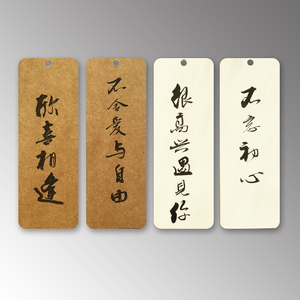 欣喜相逢
不舍爱与自由
很高兴遇见你
不忘初心